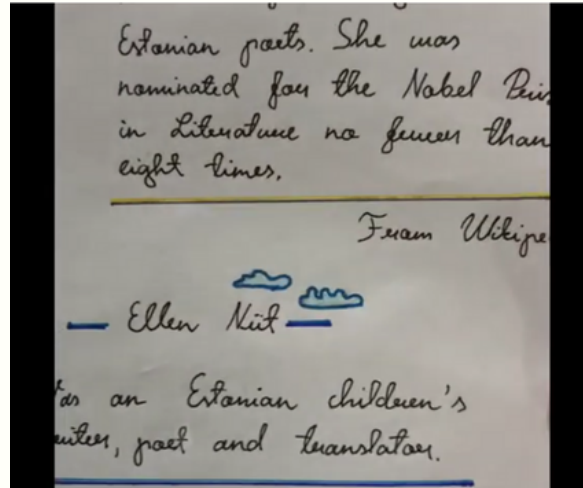 Estonian poets. She was
nominated for the Nobel
in Literature no fewer than
eight times.
From
Ellen Niit
an Estonian children's
poet and translator.